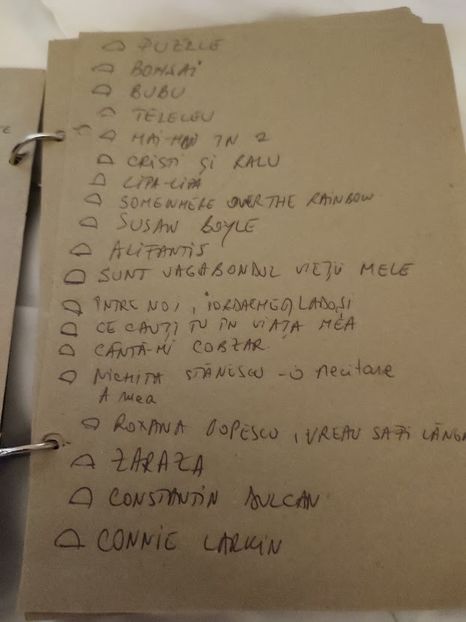 PUZZLE
BONSAI
BUBU
TELELEU
MAI-MAI IN 2
CRISTI ȘI RALU
LIPA-LIPA
SOMEWHERE OVER THE RAINBOW
SUSAN BOYLE
ALIFANTIS
SUNT VAGABONDUL VIEȚII MELE
ÎNTRE NOI,
CE CAUȚI TU ÎN VIAȚA MEA
CÂNTĂ-MI COBZAR
NICHITA STĂNESCU - O RECITARE
A MEA
ROXANA POPESCU, VREAU SĂ-ȚI LÂNGĂ
ZARAZA
CONSTANTIN DULCAN
CONNIE LARKIN